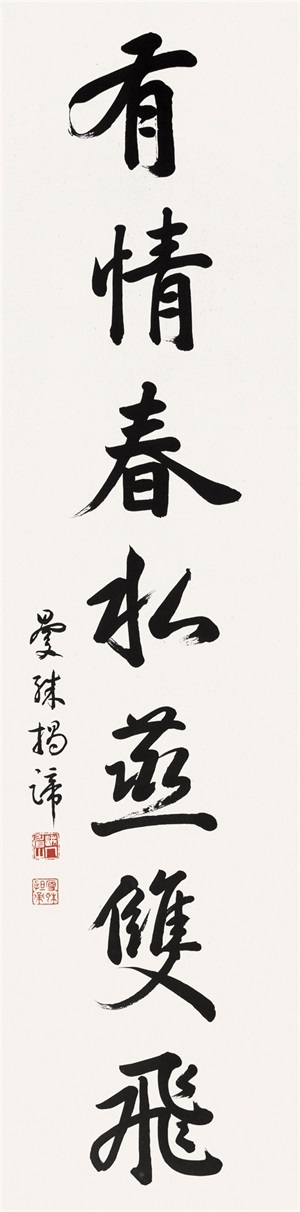 有情春私燕雙飛
曼殊揭諦